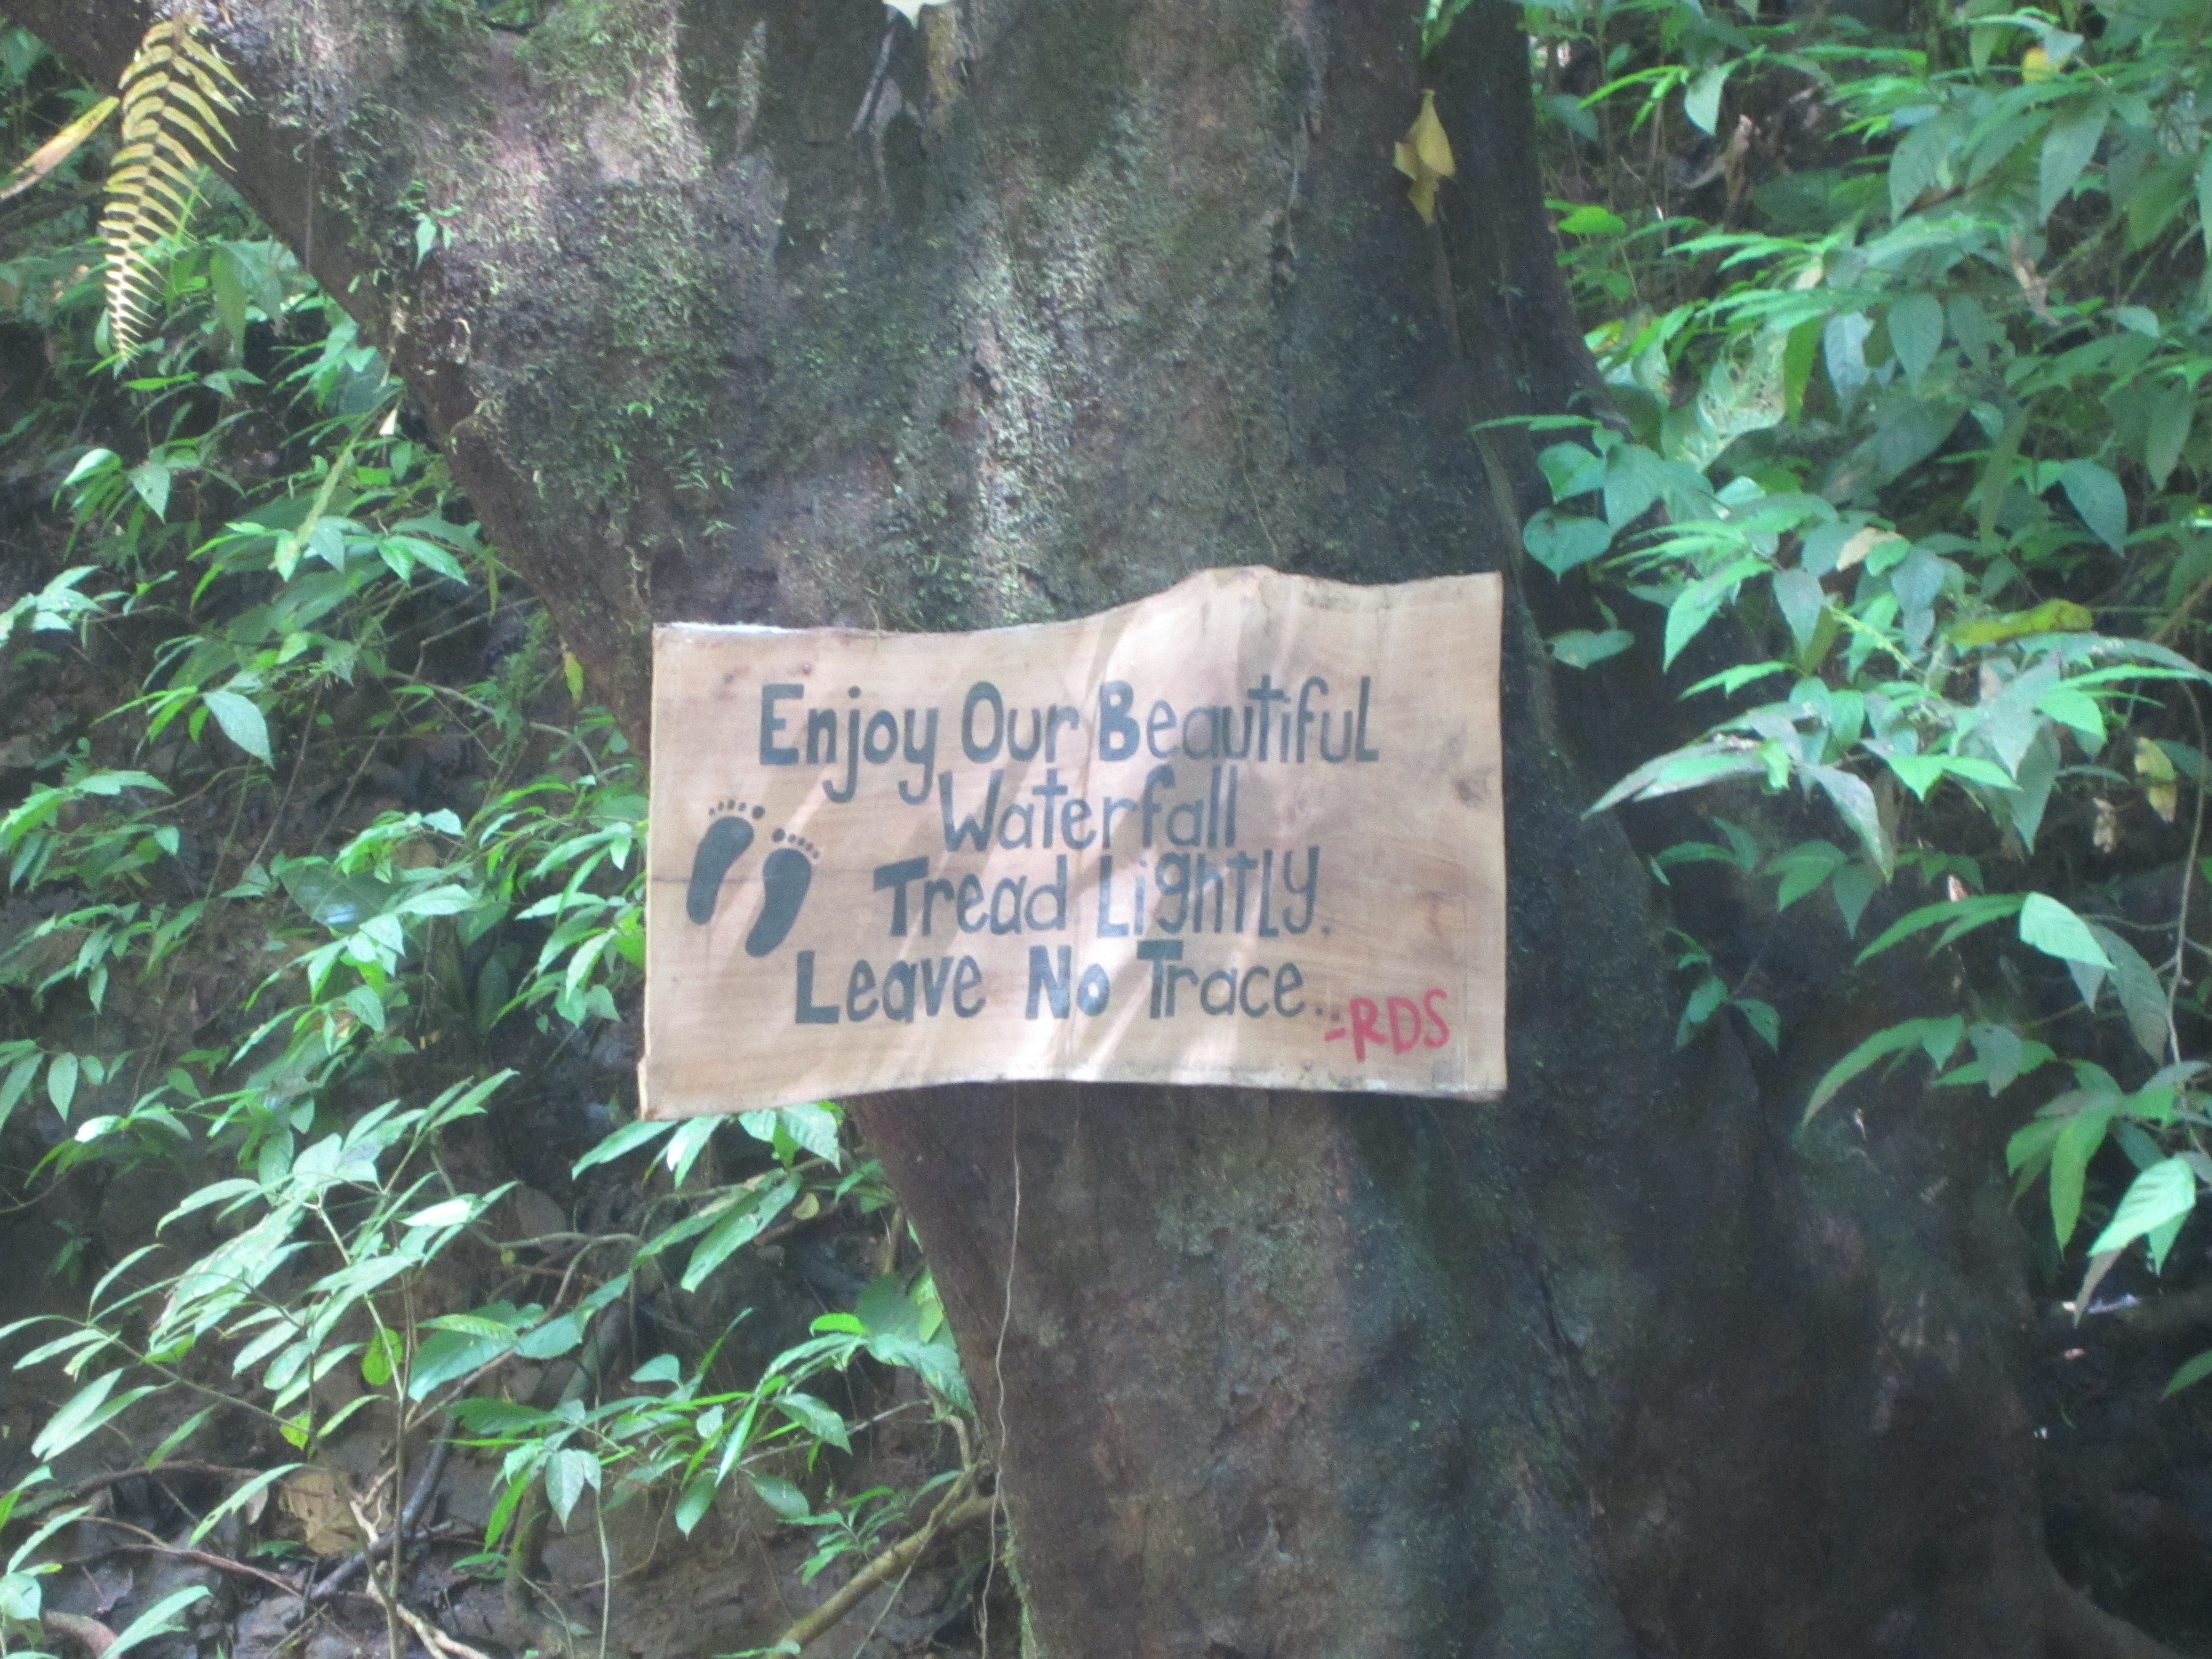 Enjoy Our Beautiful
Waterfall
Tread Lightly.
Leave No Trace...
-RDS